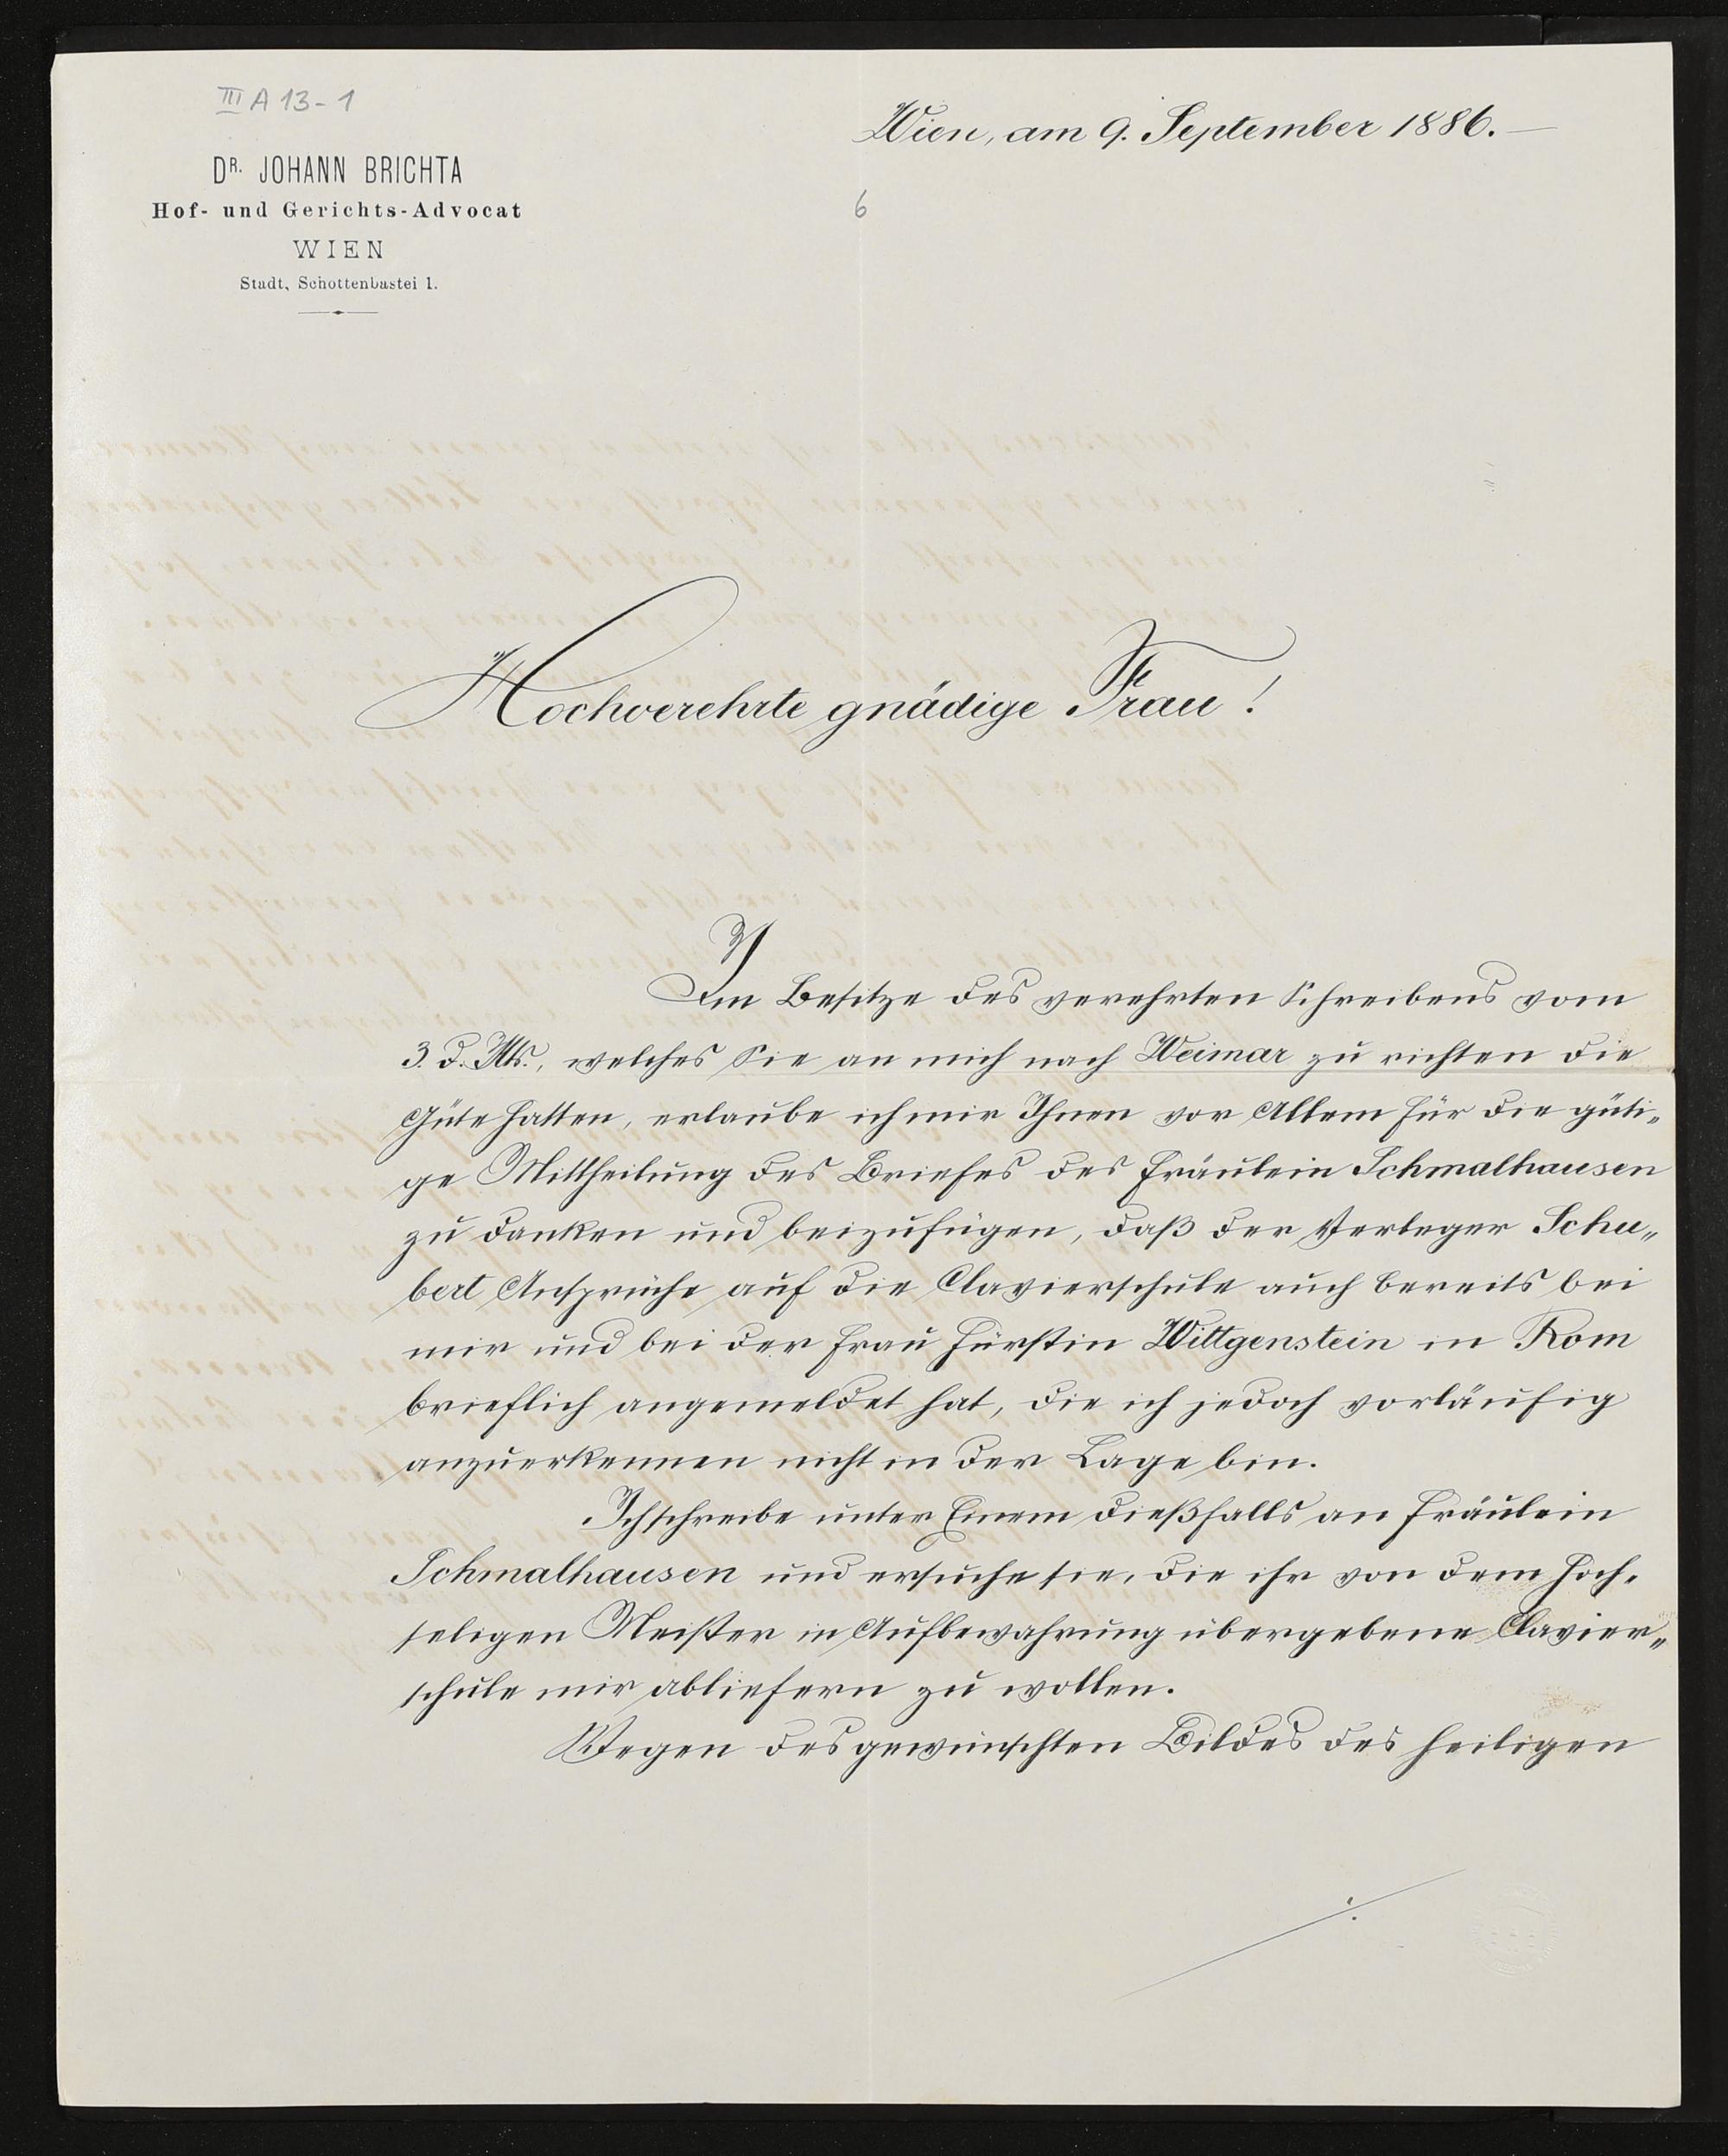 III A 13-1
Wien, am 9. September 1886.—
DR. JOHANN BRICHTA
Hof- und Gerichts-Advocat
WIEN
Stadt, Schottenbastei 1.
6
Hochverehrte gnädige Frau!
Im Besitze des verehrten Schreibens vom
3. d. Mts., welches Sie an mich nach Weimar zu richten die
Güte hatten, erlaube ich mir Ihnen vor Allem für die güti„
ge Mittheilung des Briefes des Fräulein Schmalhausen
zu danken und beizufügen, daß der Verleger Schu„
bert Ansprüche auf die Clavierschule auch bereits bei
mir und bei der Frau Fürstin Wittgenstein in Rom
brieflich angemeldet hat, die ich jedoch vorläufig
anzuerkennen nicht in der Lage bin.
Ich schreibe unter Einem dießfalls an Fräulein
Schmalhausen und ersuche sie, die ihr von dem hoch„
seligen Meister in Aufbewahrung übergebene Clavier„
schule mir abliefern zu wollen.
Wegen des gewünschten Bildes des heiligen
./.